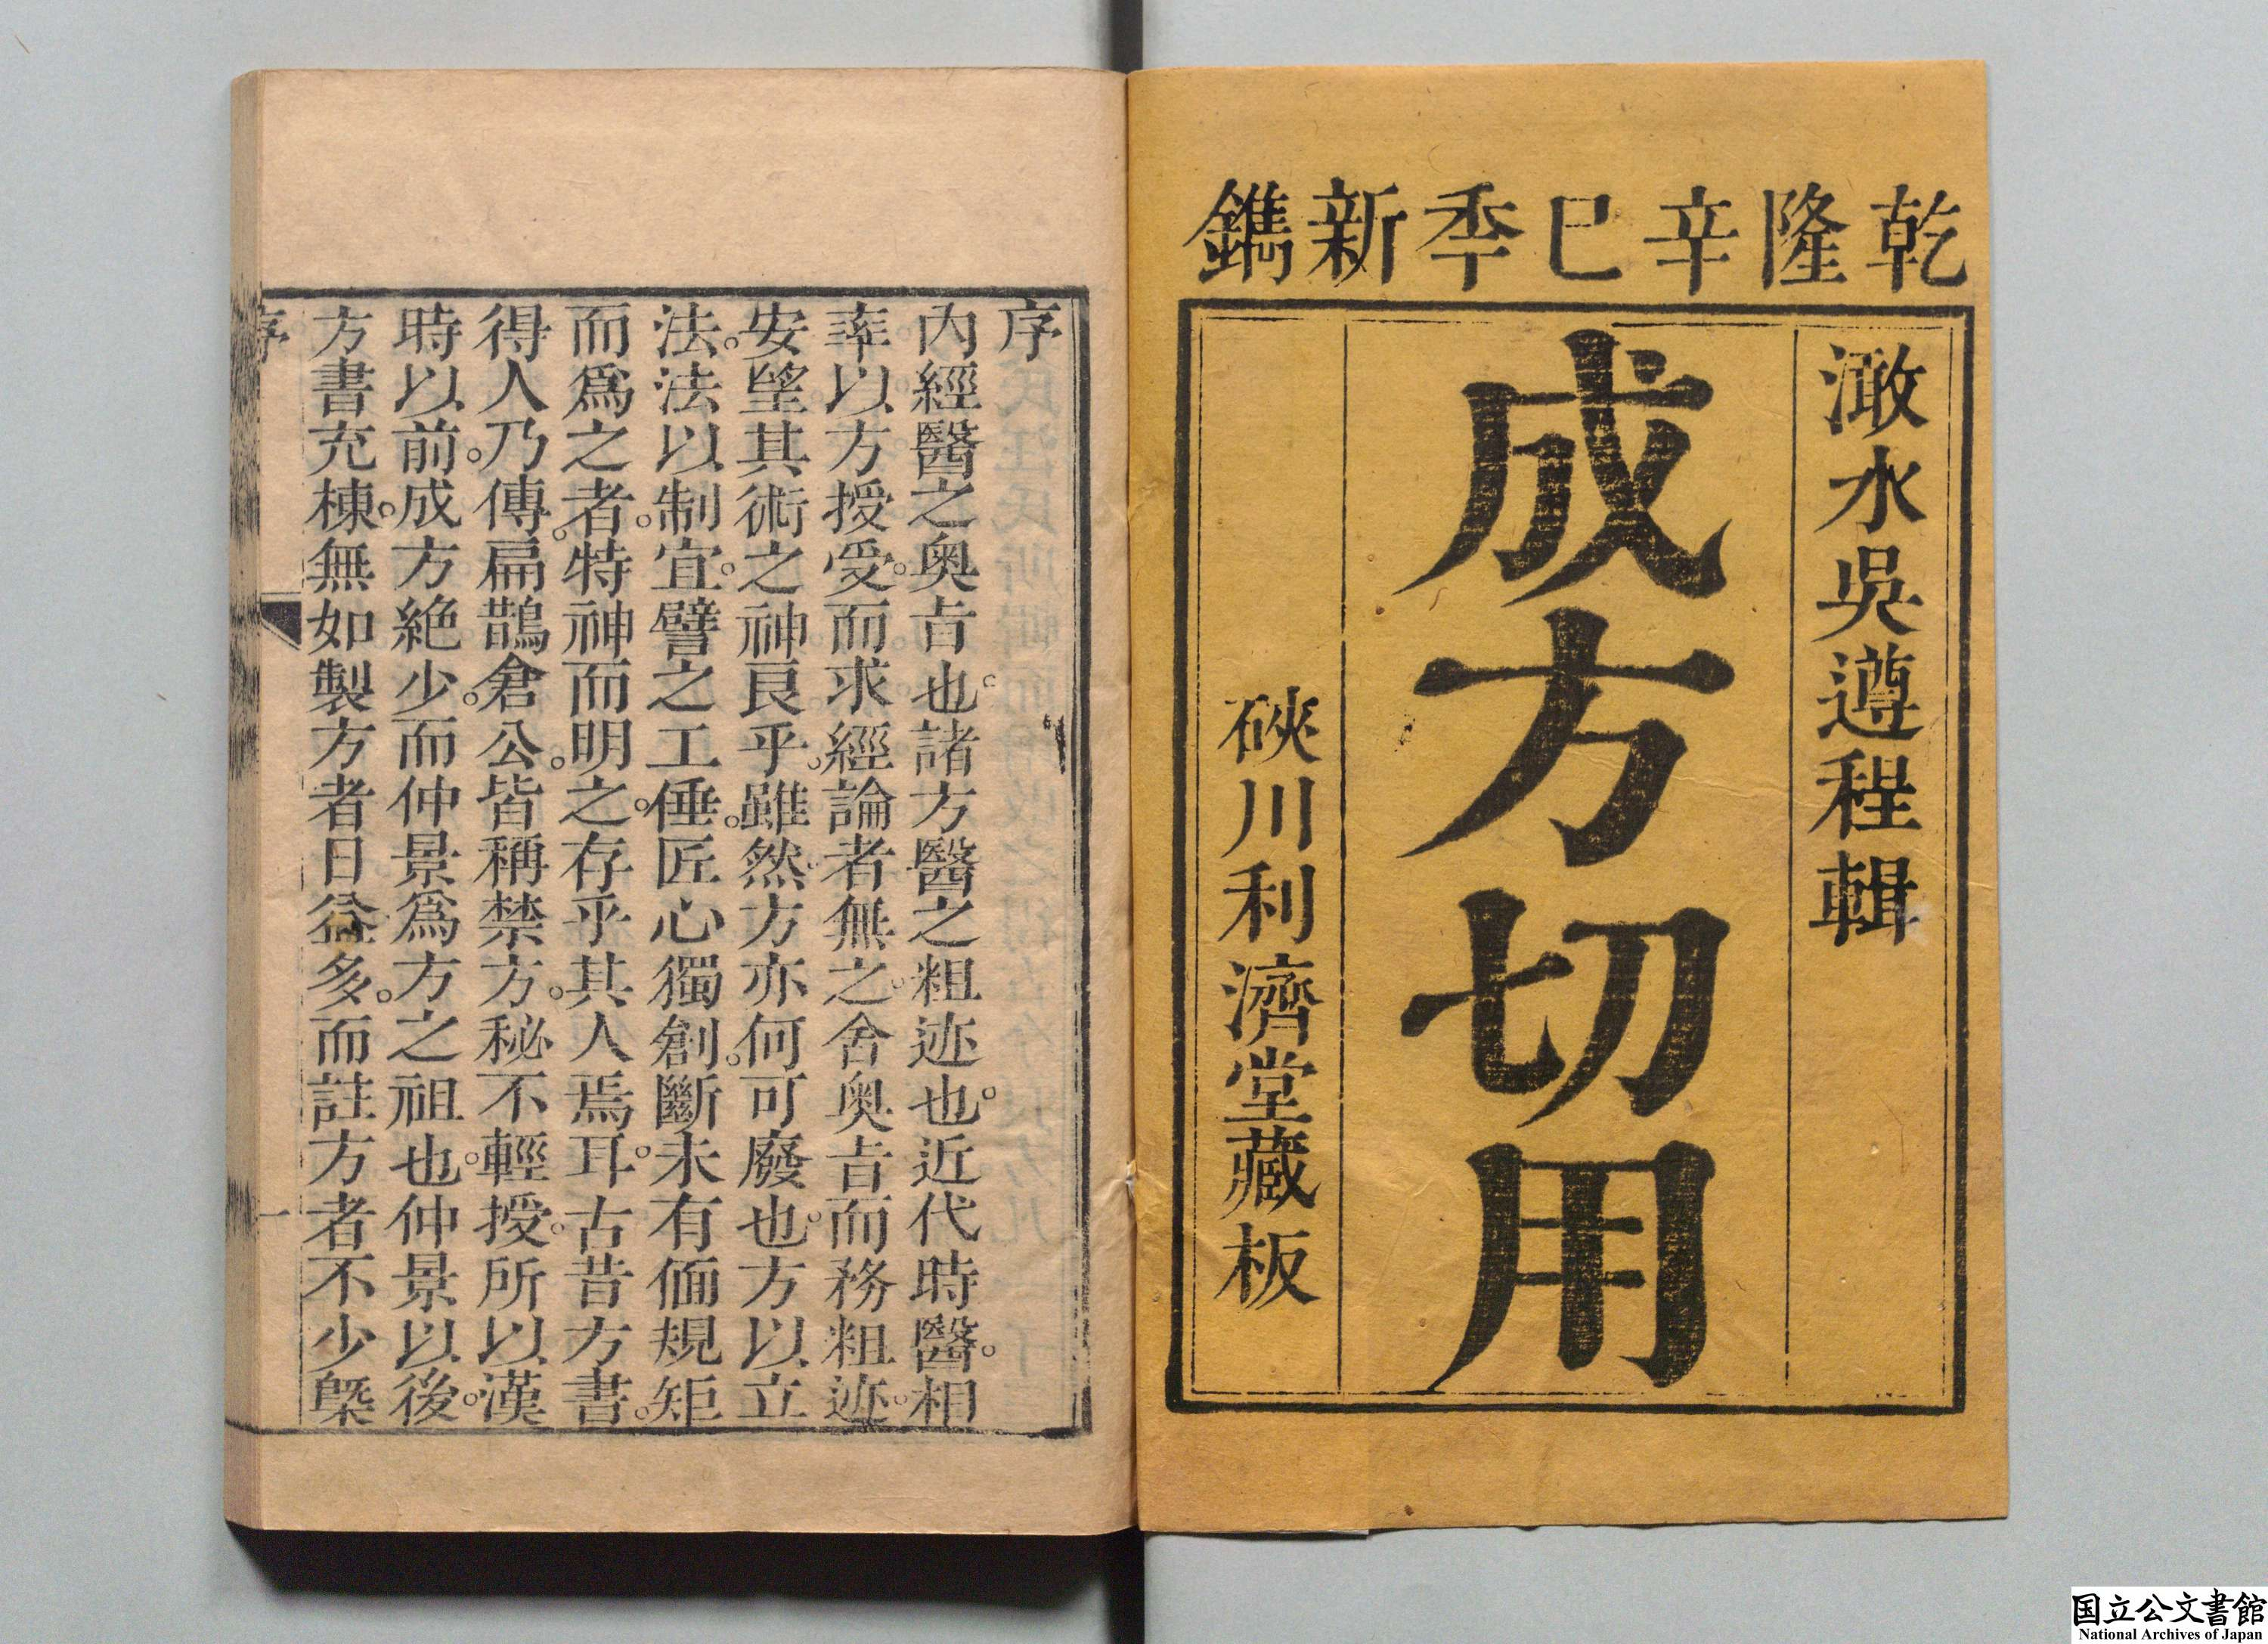 乾隆辛巳秊新鐫
澉水吳遵程輯
成方切用
硤川利濟堂藏板
序
內經醫之奧㫖也諸方醫之粗迹也近代時醫相
率以方授受而求經論者無之舍奧㫖而務粗迹
安望其術之神良乎雖然方亦何可廢也方以立
法法以制宜譬之工倕匠心獨創斷未有偭規矩
而爲之者特神而明之存乎其人焉耳古昔方書
得人乃傳扁鵲倉公皆稱禁方秘不輕授所以漢
時以前成方絶少而仲景爲方之祖也仲景以後
方書充棟無如製方者日益多而註方者不少槩
序
一
国立公文書館
National Archives of Japan